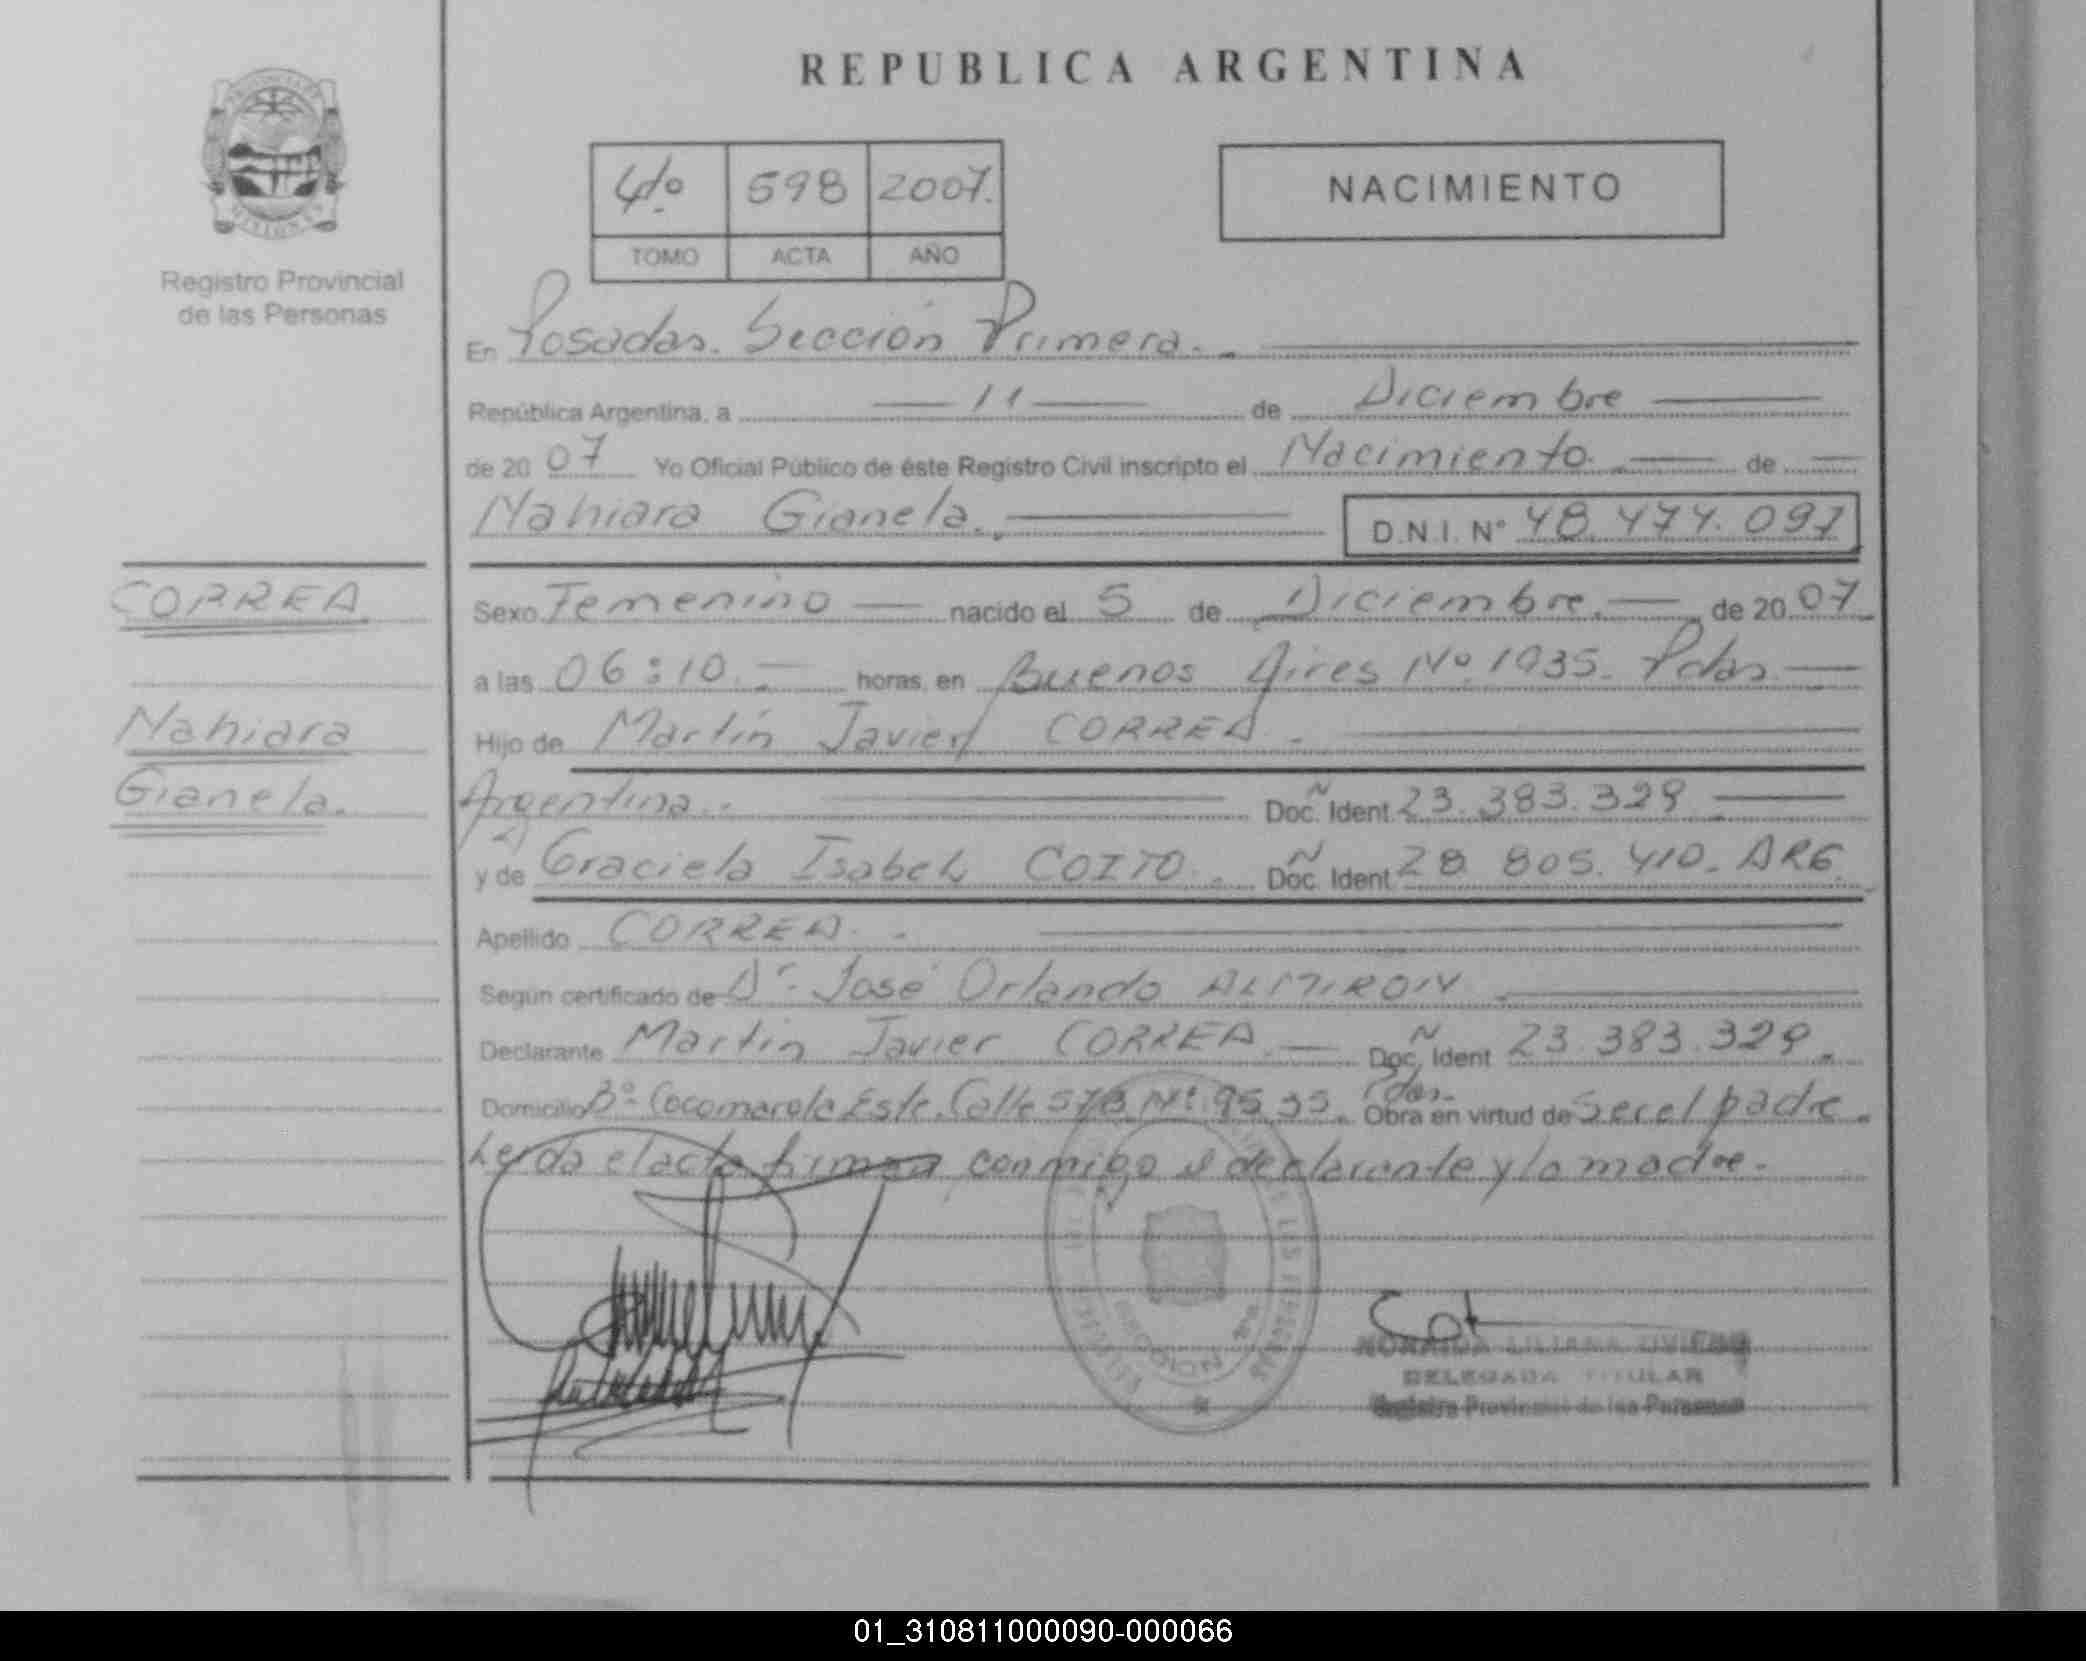 REPUBLICA ARGENTINA
4to 598 2007.
TOMO ACTA AÑO
NACIMIENTO
Registro Provincial
de las Personas
En Posadas. Sección Primera.
República Argentina, a 11 de Diciembre
de 20 07 Yo Oficial Público de éste Registro Civil inscripto el Nacimiento. de
Nahiara Gianela. D.N.I. N° 48.474.097
CORREA
Nahiara
Gianela.
Sexo Femenino nacido el 5 de Diciembre. de 20 07
a las 06:10. horas, en Buenos Aires Nº 1935. Pdas
Hijo de Martín Javier CORREA.
Argentina. Doc. Ident. 23.383.329
y de Graciela Isabel COITO. Doc. Ident 28 805.410. ARG.
Apellido CORREA.
Según certificado de Dr. José Orlando ALMIRON
Declarante Martin Javier CORREA. Doc. Ident 23.383.329.
Domicilio Bº Cocomarola Este. Calle Nº Pdas. Obra en virtud de Ser el padre.
Leída el acta firman conmigo el declarante y la madre.
LILIANA
DELEGADA TITULAR
Registro Provincial de las Personas
01_310811000090-000066